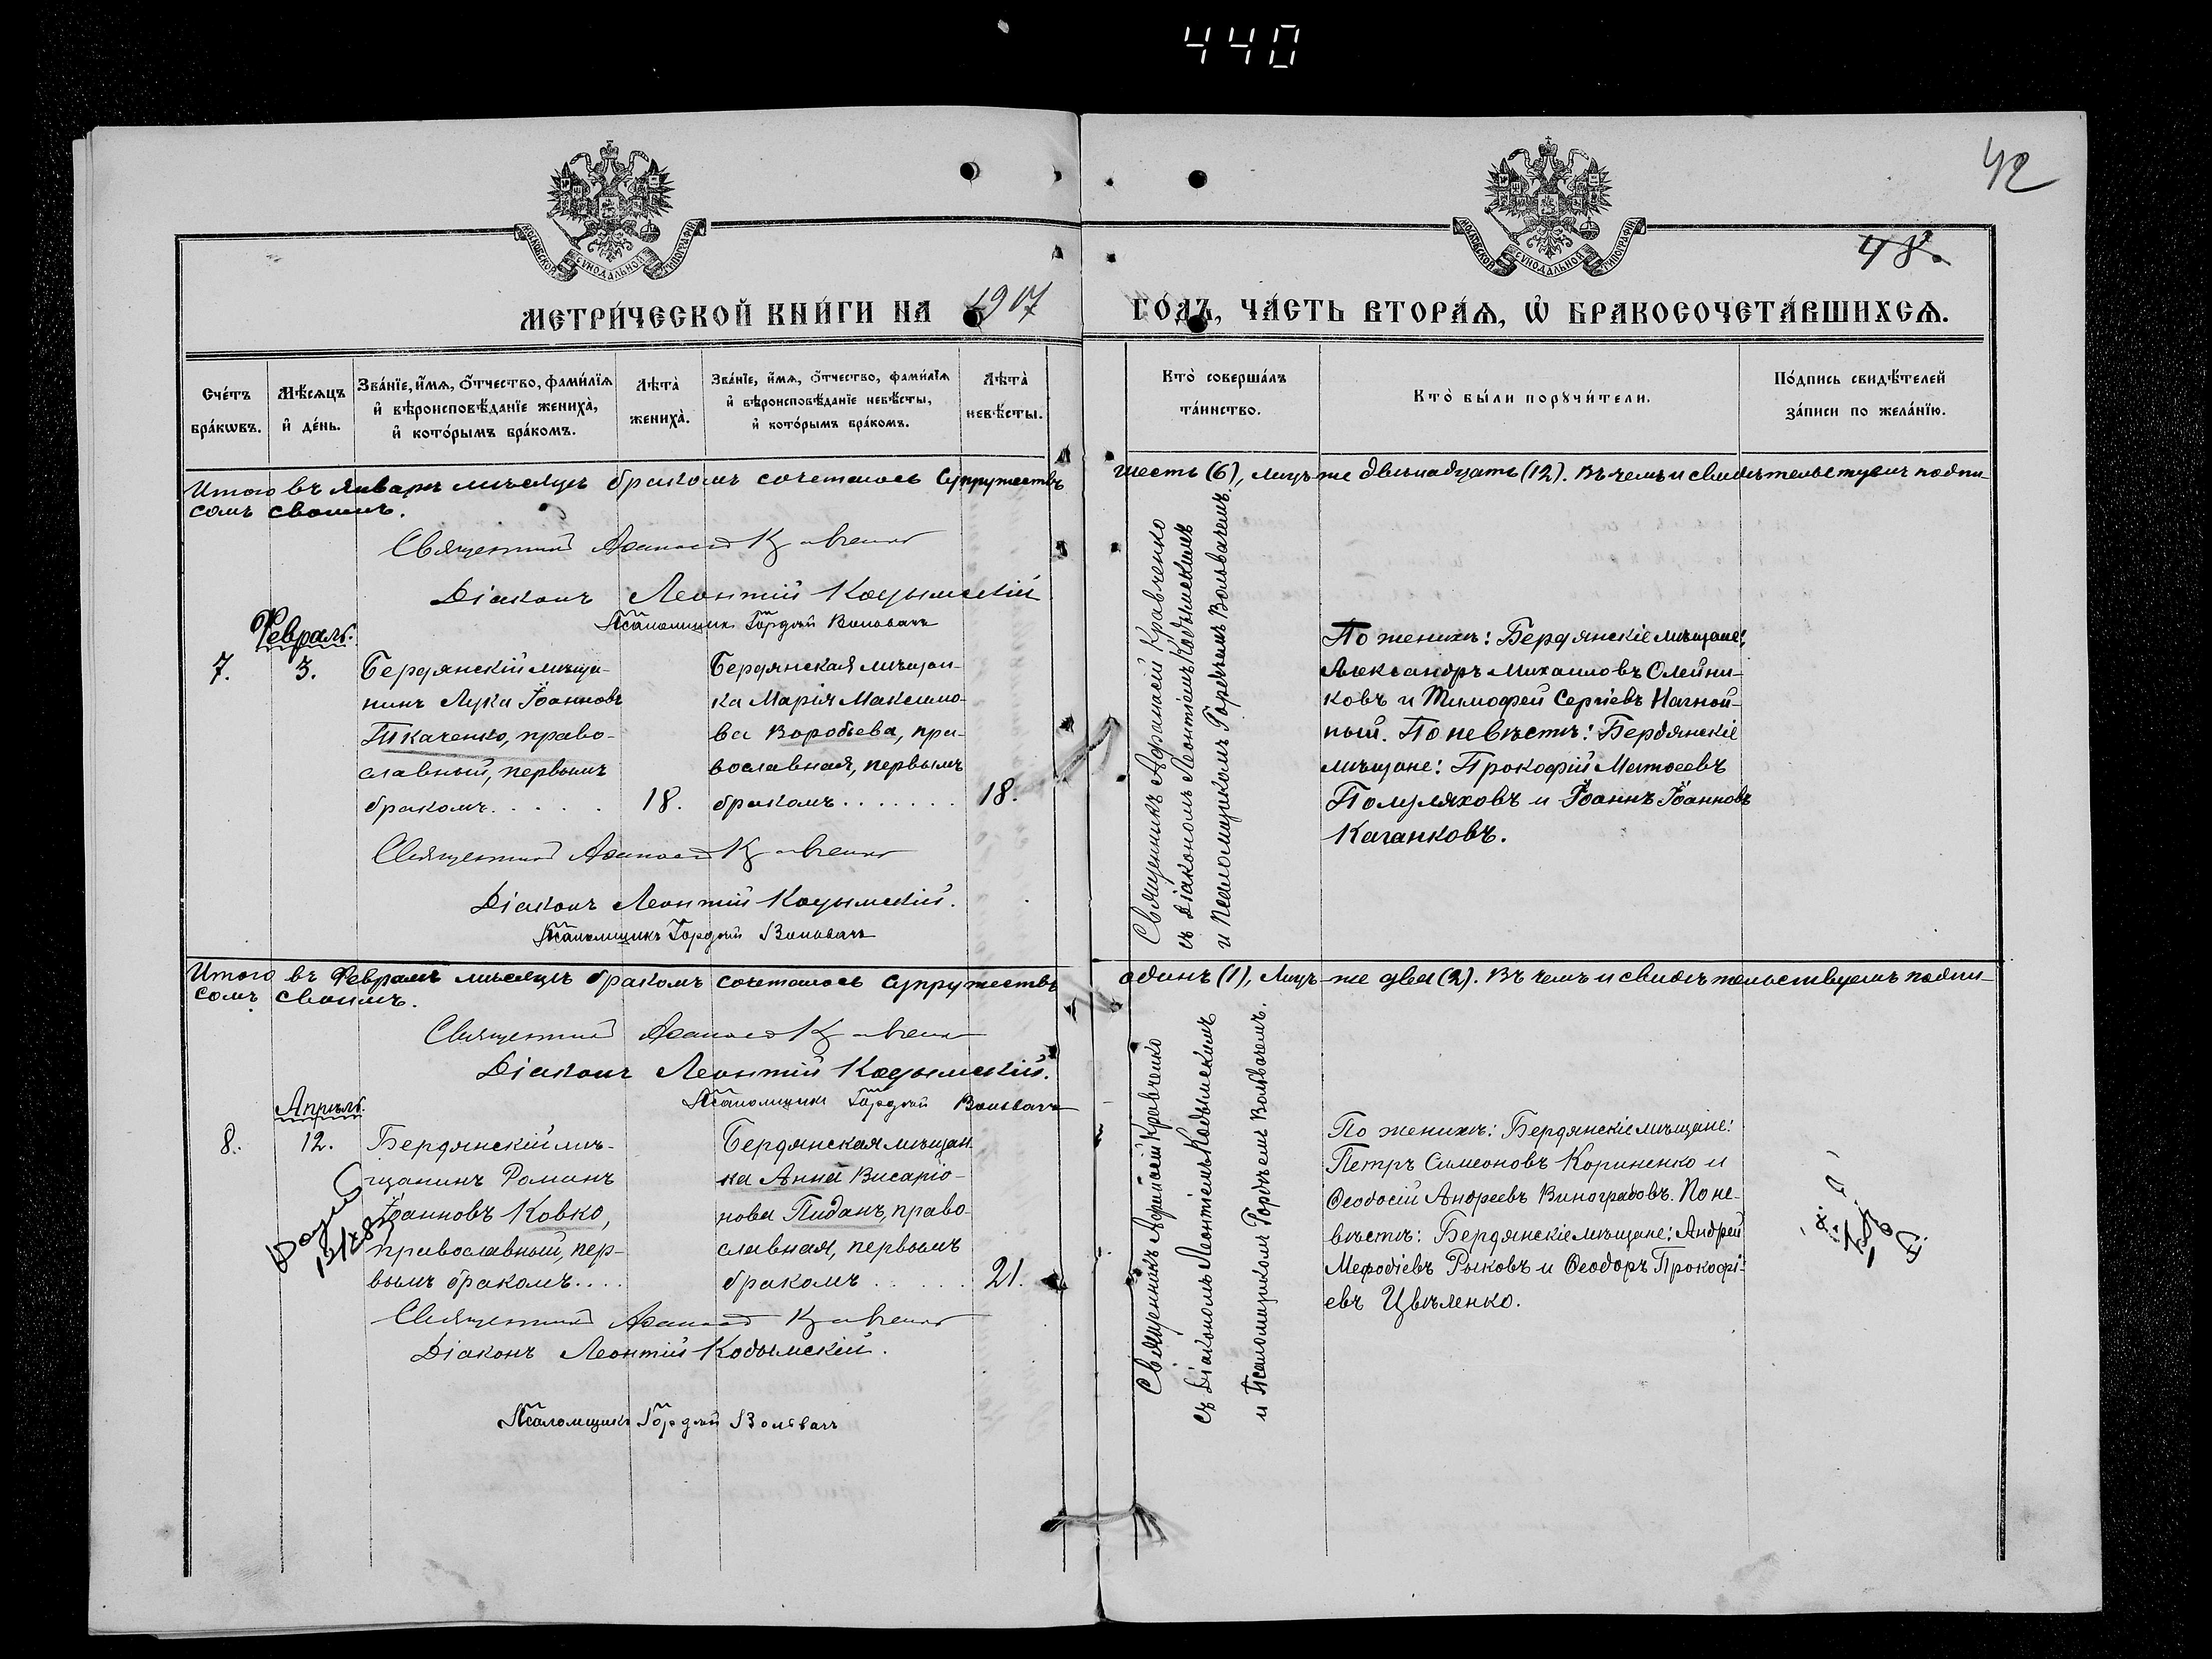 440
42
48.
МОСКОВСКОЙ СУНОДАЛЬНОЙ ТИПОГРАФІИ
МОСКОВСКОЙ СУНОДАЛЬНОЙ ТИПОГРАФІИ
МЕТРИ́ЧЕСКОЙ КНИ́ГИ НА 1907 ГО́ДЪ, ЧА́СТЬ ВТОРА́Ѧ, Ѡ҆ БРАКОСОЧЕТА́ВШИХСѦ.
Сче́тъ бра́кѡвъ.
Мѣ́сѧцъ и҆ де́нь.
Зва́нїе, и҆́мѧ, ѻ҆́тчество, фами́лїѧ и҆ вѣроисповѣ́данїе жениха̀, и҆ кото́рымъ бра́комъ.
Лѣта̀ жениха̀.
Зва́нїе, и҆́мѧ, ѻ҆́тчество, фами́лїѧ и҆ вѣроисповѣ́данїе невѣ́сты, и҆ кото́рымъ бра́комъ.
Лѣта̀ невѣ́сты.
Кто̀ соверша́лъ та́инство.
Кто̀ бы́ли порꙋчи́тели.
По́дпись свидѣ́телей за́писи по жела́нїю.
Итого въ Январѣ мѣсяцѣ бракомъ сочеталось супружествъ шесть (6), лицъ-же двѣнадцать (12). Въ чемъ и свидѣтельствуемъ подпи-
сомъ своимъ.
Священникъ Афанасій Кравченко
Діаконъ Леонтій Кодымскій
Псаломщикъ Гордѣй Вольвачъ
Февраль.
7.
3.
Бердянскій мѣща-
нинъ Лука Іоанновъ
Ткаченко, право-
славный, первымъ
бракомъ. . . . .
18.
Бердянская мѣщан-
ка Марія Максимо-
ва Воробьева, пра-
вославная, первымъ
бракомъ . . . . . . .
18.
Священникъ Афанасій Кравченко
съ Діакономъ Леонтіемъ Кодымскимъ
и Псаломщикомъ Гордѣемъ Вольвачемъ.
По женихѣ: Бердянскіе мѣщане:
Александръ Михаиловъ Олейни-
ковъ и Тимофей Сергіевъ Нагной-
ный. По невѣстѣ: Бердянскіе
мѣщане: Прокофій Матѳеевъ
Полуляховъ и Іоаннъ Іоанновъ
Каганковъ.
Священникъ Афанасій Кравченко
Діаконъ Леонтій Кодымскій.
Псаломщикъ Гордѣй Вольвачъ
Итого въ Февралѣ мѣсяцѣ бракомъ сочеталось супружествъ одинъ (1), лицъ-же два (2). Въ чемъ и свидѣтельствуемъ подпи-
сомъ своимъ.
Священникъ Афанасій Кравченко
Діаконъ Леонтій Кодымскій.
Псаломщикъ Гордѣй Вольвачъ
Апрѣль.
8.
12.
Бердянскій мѣ-
щанинъ Романъ
Іоанновъ Ковко,
православный, пер-
вымъ бракомъ. . . .
Бердянская мѣщан-
ка Анна Висаріо-
нова Пиданъ, право-
славная, первымъ
бракомъ . . . . . .
21.
Священникъ Афанасій Кравченко
съ Діакономъ Леонтіемъ Кодымскимъ
и Псаломщикомъ Гордѣемъ Вольвачемъ.
По женихѣ: Бердянскіе мѣщане:
Петръ Симеоновъ Кориненко и
Ѳеодосій Андреевъ Виноградовъ. По не-
вѣстѣ: Бердянскіе мѣщане: Андрей
Меѳодіевъ Рыковъ и Ѳеодоръ Прокофі-
евъ Цвѣленко.
Священникъ Афанасій Кравченко
Діаконъ Леонтій Кодымскій.
Псаломщикъ Гордѣй Вольвачъ